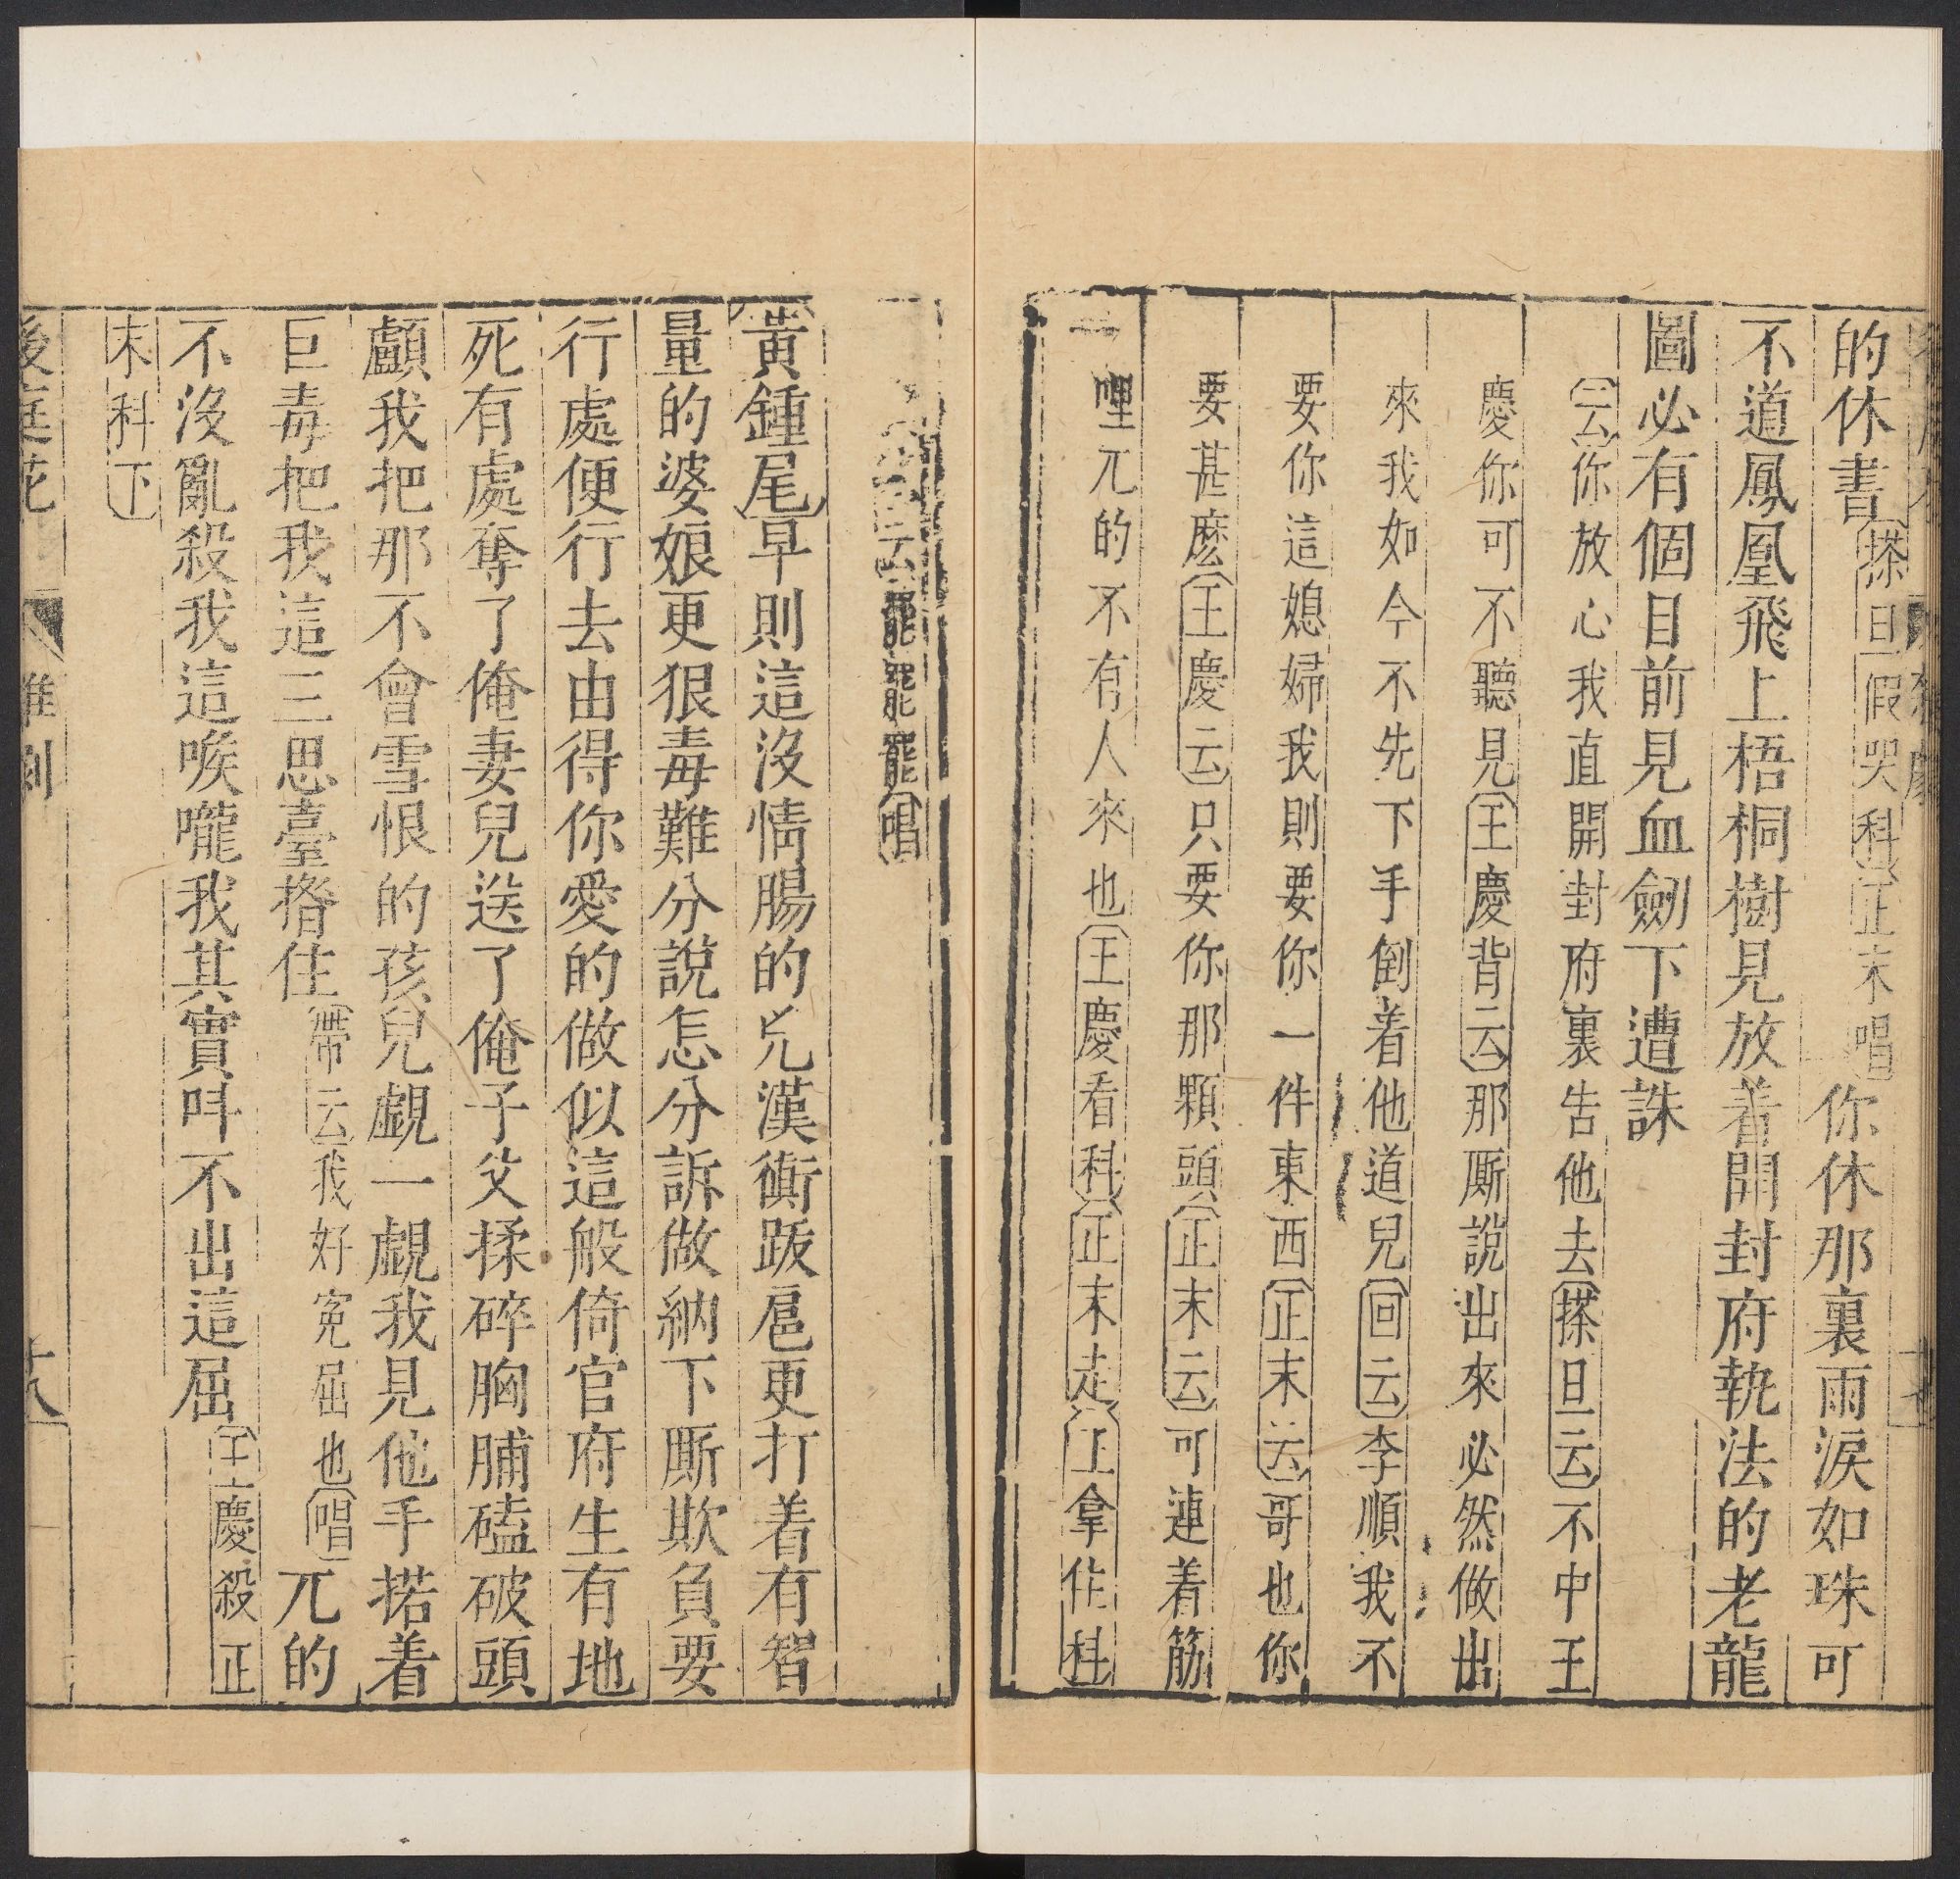 的休書搽旦假哭科正末唱你休那裏雨淚如珠可
不道鳳凰飛上梧桐樹見放着開封府執法的老龍
圖必有個目前見血劒下遭誅
云你放心我直開封府裏告他去搽旦云不中王
慶你可不聽見王慶背云那厮說出來必然做出
來我如今不先下手倒着他道兒回云李順我不
要你這媳婦我則要你一件東西正末云哥也你
要甚麽王慶云只要你那顆頭正末云可連着筋
哩兀的不有人來也王慶看科正末走上拿住科
云罷罷罷唱
黃鍾尾早則這沒情腸的兇漢衠跋扈更打着有智
量的婆娘更狠毒難分說怎分訴做納下厮欺負要
行處便行去由得你愛的做似這般倚官府生有地
死有處奪了俺妻兒送了俺子父揉碎胸脯磕破頭
顱我把那不會雪恨的孩兒覷一覷我見他手掿着
巨毒把我這三思臺揝住帶云我好寃屈也唱兀的
不沒亂殺我這喉嚨我其實呌不出這屈王慶殺正
末科下
後庭花
雜劇
十八